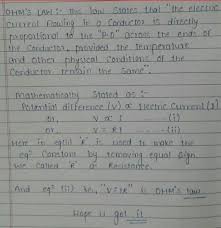 OHM's LAW :- this law states that "the electric
current flowing in a conductor is directly
proportional to the "P.D" across the ends of
the conductor, provided the temperature
and other physical conditions of the
conductor remain the same".
Mathematically stated as :-
Potential difference (V) ∝ Electric Current (I)
or, V ∝ I (i)
or, V = RI (ii)
Here in is used to make the
eqn constant by removing equal sign.
we called 'R' as Resistance.
And eqn (ii) i.e., "V=IR" is OHM's law.
Hope u got it